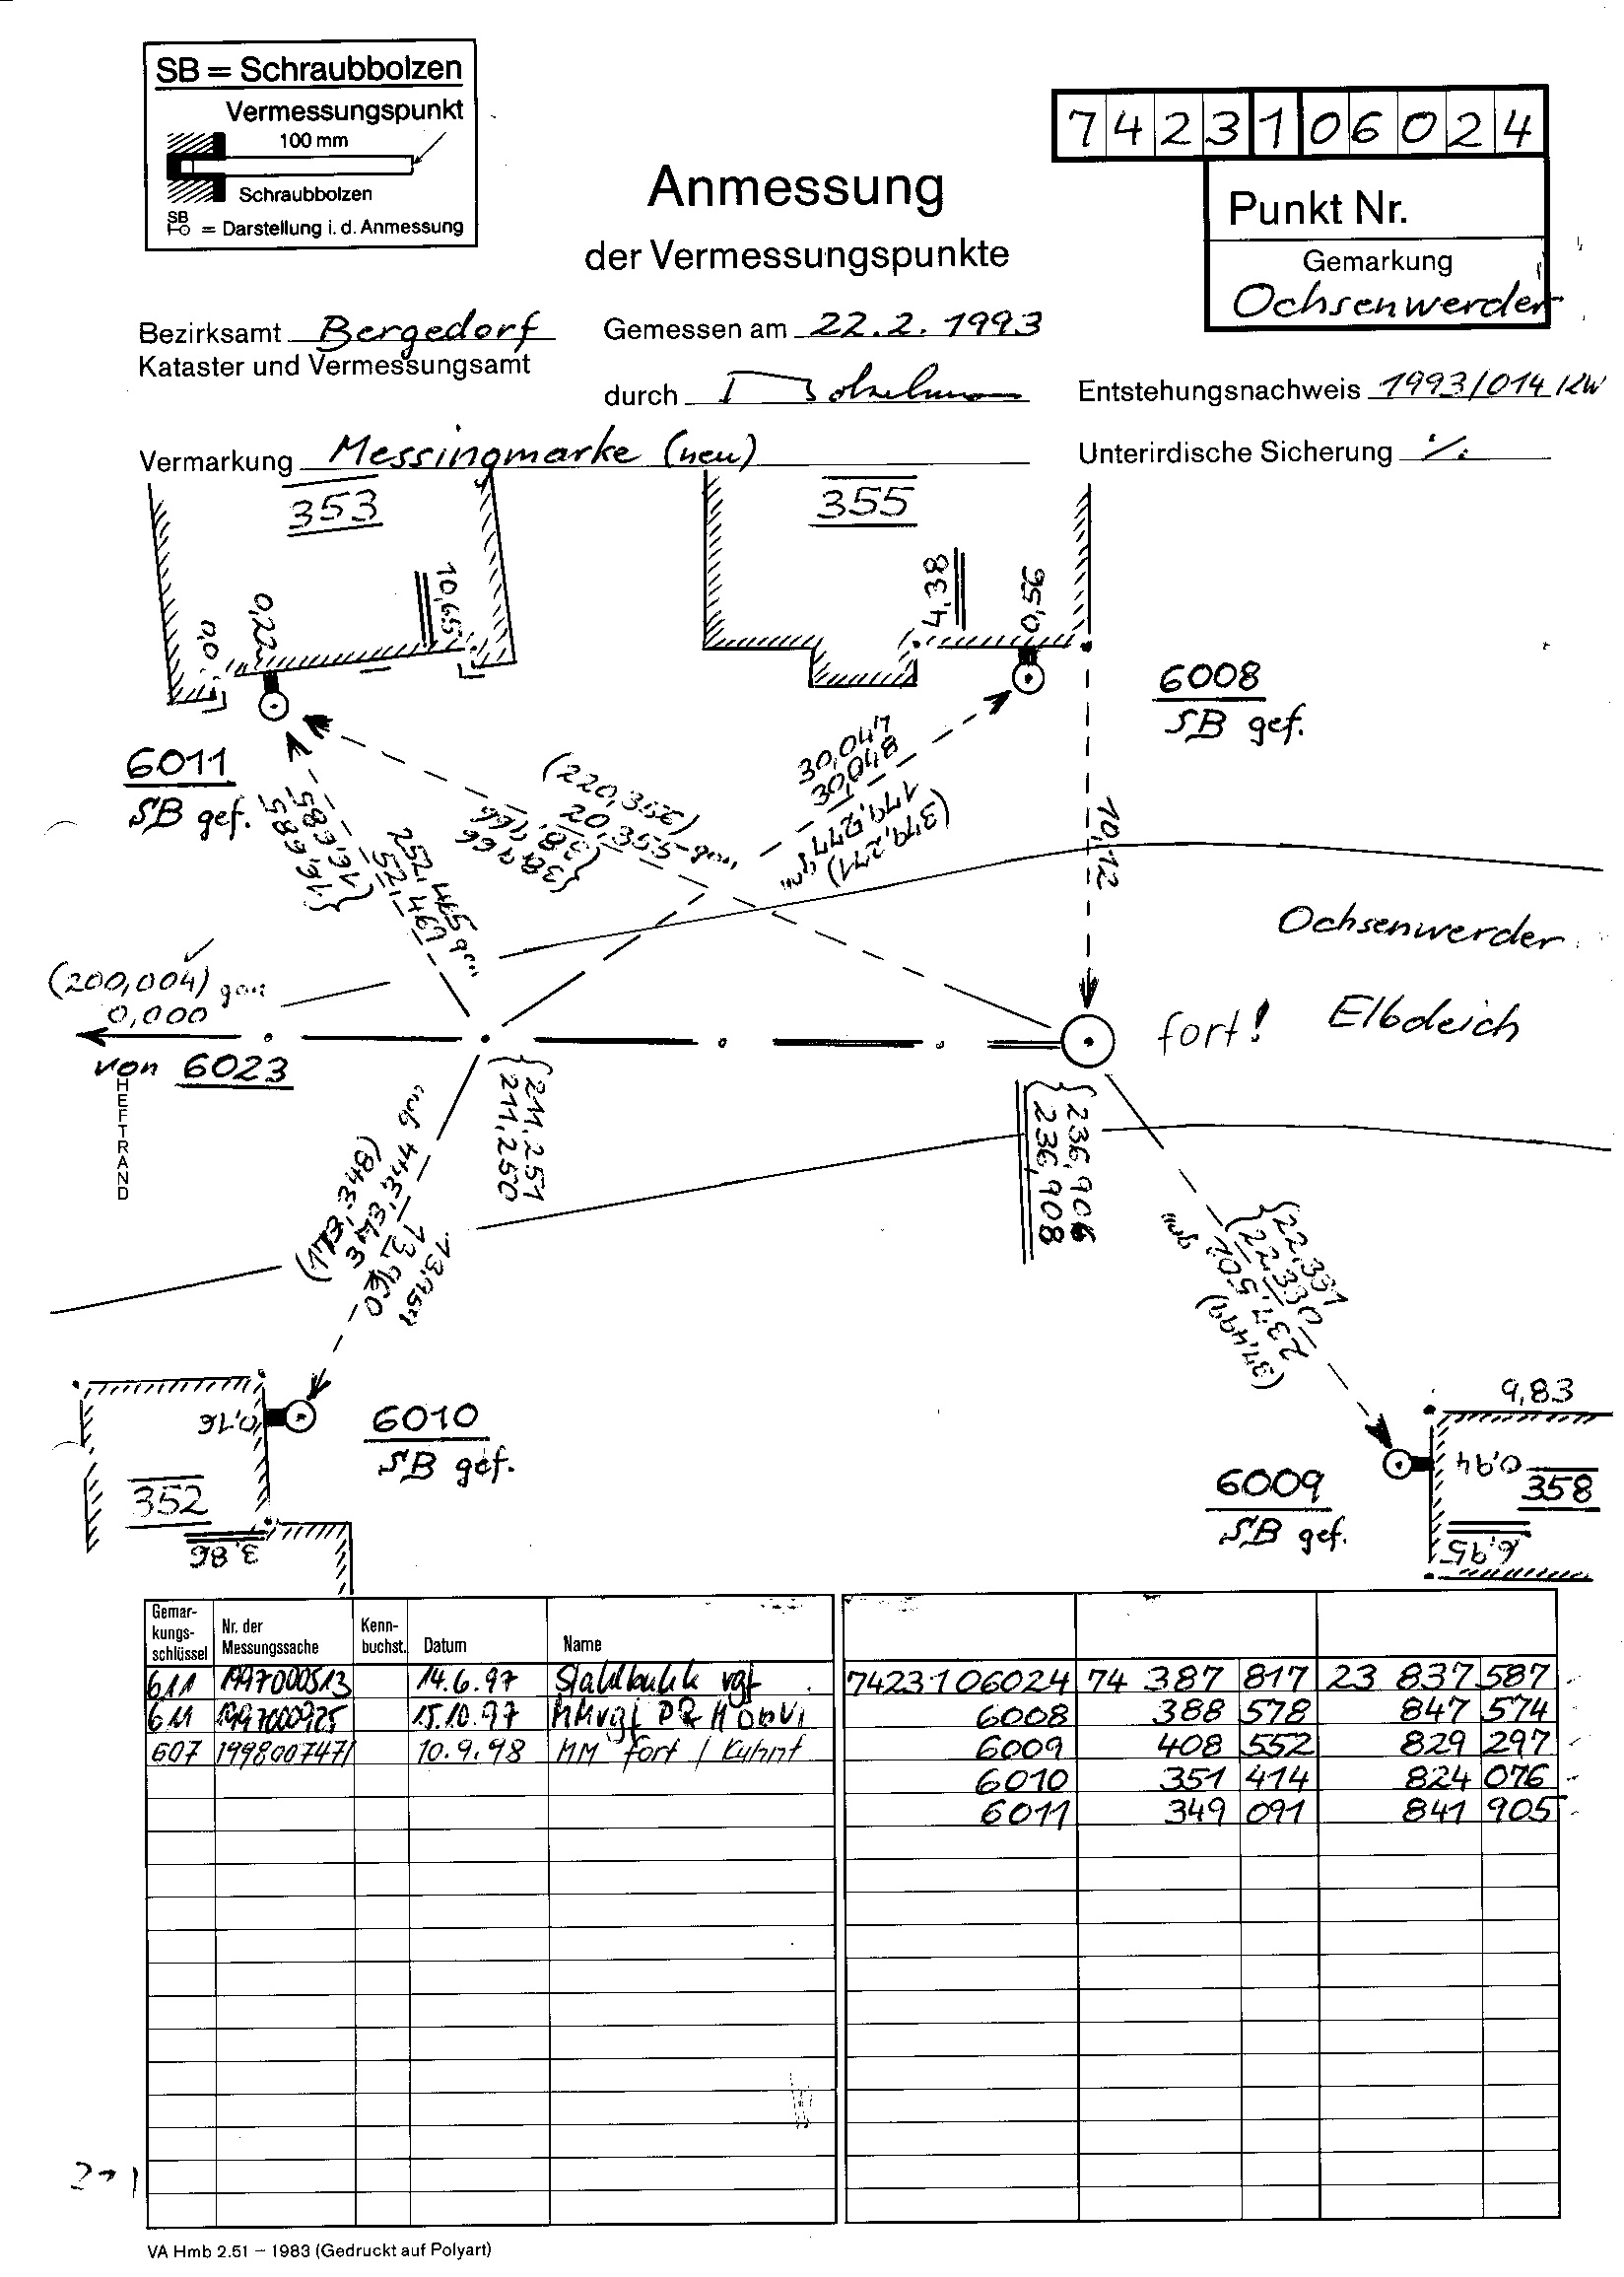 SB = Schraubbolzen
Vermessungspunkt
100 mm
Schraubbolzen
SB
= Darstellung i. d. Anmessung
Anmessung
der Vermessungspunkte
7423106024
Punkt Nr.
Gemarkung
Ochsenwerder
Bezirksamt Bergedorf
Kataster und Vermessungsamt
Gemessen am 22.2.1993
durch
Entstehungsnachweis 1993/014 KW
Vermarkung Messingmarke (neu)
Unterirdische Sicherung ./.
353
355
10,65
4,38
0,56
0,22
0,0
6008
SB gef.
6011
SB gef.
30,047
30,048
179,277 gon
(379,271)
(220,356)
20,355 gon
{38,166
38,166
16,685
16,685
252,465 gon
52,467 gon
10,12
Ochsenwerder
Elbdeich
(200,004) gon
0,000
von 6023
fort!
HEFTRAND
{211,251
211,250
{236,906
236,908
(173,348)
373,344 gon
13,960
13,959
{22,331
22,330
237,501 gon
(37,499)
9,83
0,16
6010
SB gef.
6009
SB gef.
0,94
358
6,95
352
3,86
Gemar-
kungs-
schlüssel
Nr. der
Messungssache
Kenn-
buchst.
Datum
Name
611 1997000513 14.6.97 vgf 74231 06024 74 387 817 23 837 587
611 1997000925 15.10.97 6008 388 578 847 574
607 1998007471 10.9.98 MM fort / Kuhnt 6009 408 552 829 297
6010 351 414 824 076
6011 349 091 841 905
VA Hmb 2.51 – 1983 (Gedruckt auf Polyart)